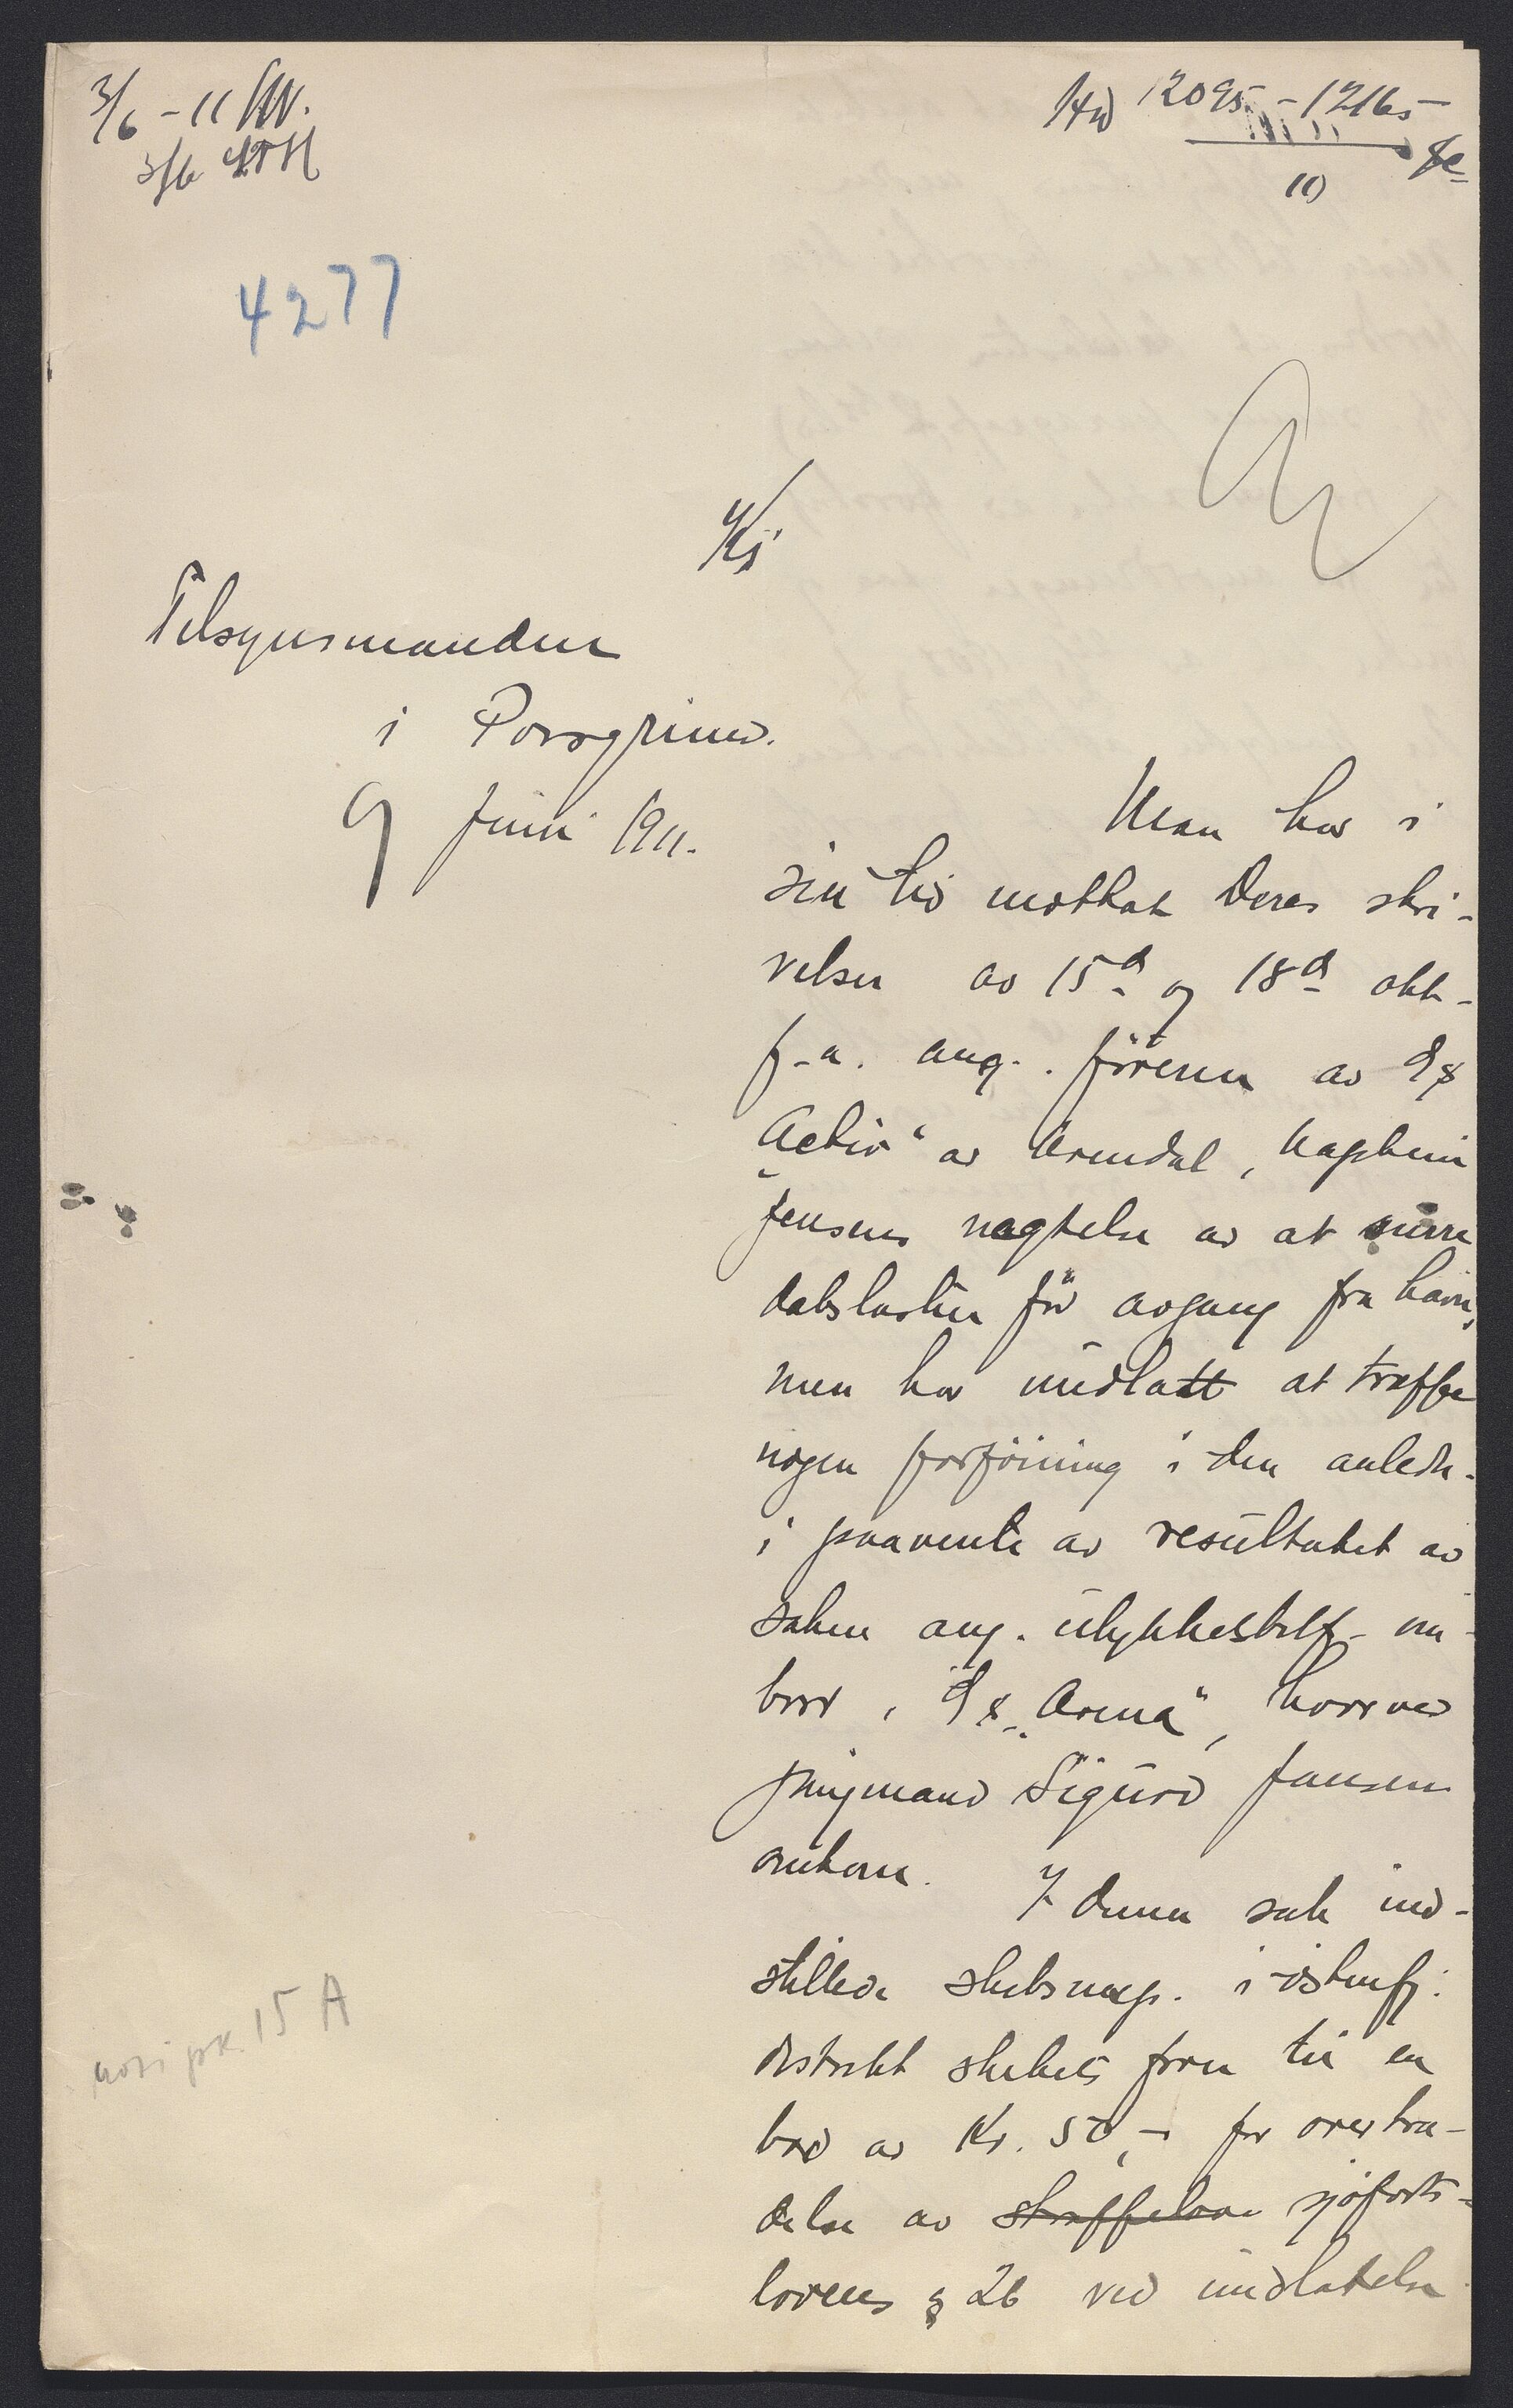 3/6 - 11
3/6
12095 - 12165
10
4277
Tilsynsmanden
i Porsgrund.
9 Juni 1911.
Man har i
sin tid mottat Deres skri-
velser av 15d og 18d okt.
f.a. ang. føreren av D/S
"Activ" av Arendal, kaptein
Jensens nægtelse av at surre
dækslasten før avgang fra havn,
men har undlatt at træffe
nogen forføining i den anledn.
i paavente av resultatet av
saken ang. ulykkestilf. om-
bord i D/S "Arena", hvorved
jungmand Sigurd Jansen
omkom. I denne sak ind-
stillede skibsinsp. i østenfj.
distrikt skibets fører til en
bod av Kr. 50,- for overtræ-
delse av straffelove sjøfarts-
lovens § 26 ved undlatelse
nos i pk. 15 A